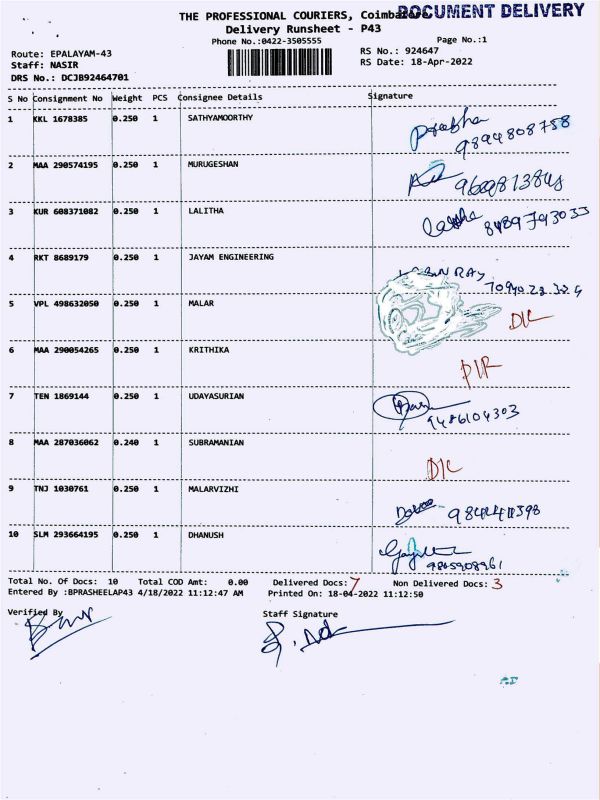 THE PROFESSIONAL COURIERS, Coimbatore
DOCUMENT DELIVERY
Delivery Runsheet - P43
Phone No.:0422-3505555
Page No.:1
Route: EPALAYAM-43
RS No.: 924647
Staff: NASIR
RS Date: 18-Apr-2022
DRS No.: DCJB92464701
S No Consignment No Weight PCS Consignee Details Signature
1 KKL 1678385 0.250 1 SATHYAMOORTHY Prabha
9894808758
2 MAA 290574195 0.250 1 MURUGESHAN
3 KUR 608371082 0.250 1 LALITHA Lalitha 8489793033
4 RKT 8689179 0.250 1 JAYAM ENGINEERING
5 VPL 498632050 0.250 1 MALAR D/L
6 MAA 290054265 0.250 1 KRITHIKA
7 TEN 1869144 0.250 1 UDAYASURIAN
9486104303
8 MAA 287036062 0.240 1 SUBRAMANIAN D/L
9 TNJ 1030761 0.250 1 MALARVIZHI
10 SLM 293664195 0.250 1 DHANUSH
9865908961
Total No. Of Docs: 10 Total COD Amt: 0.00 Delivered Docs: 7 Non Delivered Docs: 3
Entered By :BPRASHEELAP43 4/18/2022 11:12:47 AM Printed On: 18-04-2022 11:12:50
Verified By Staff Signature